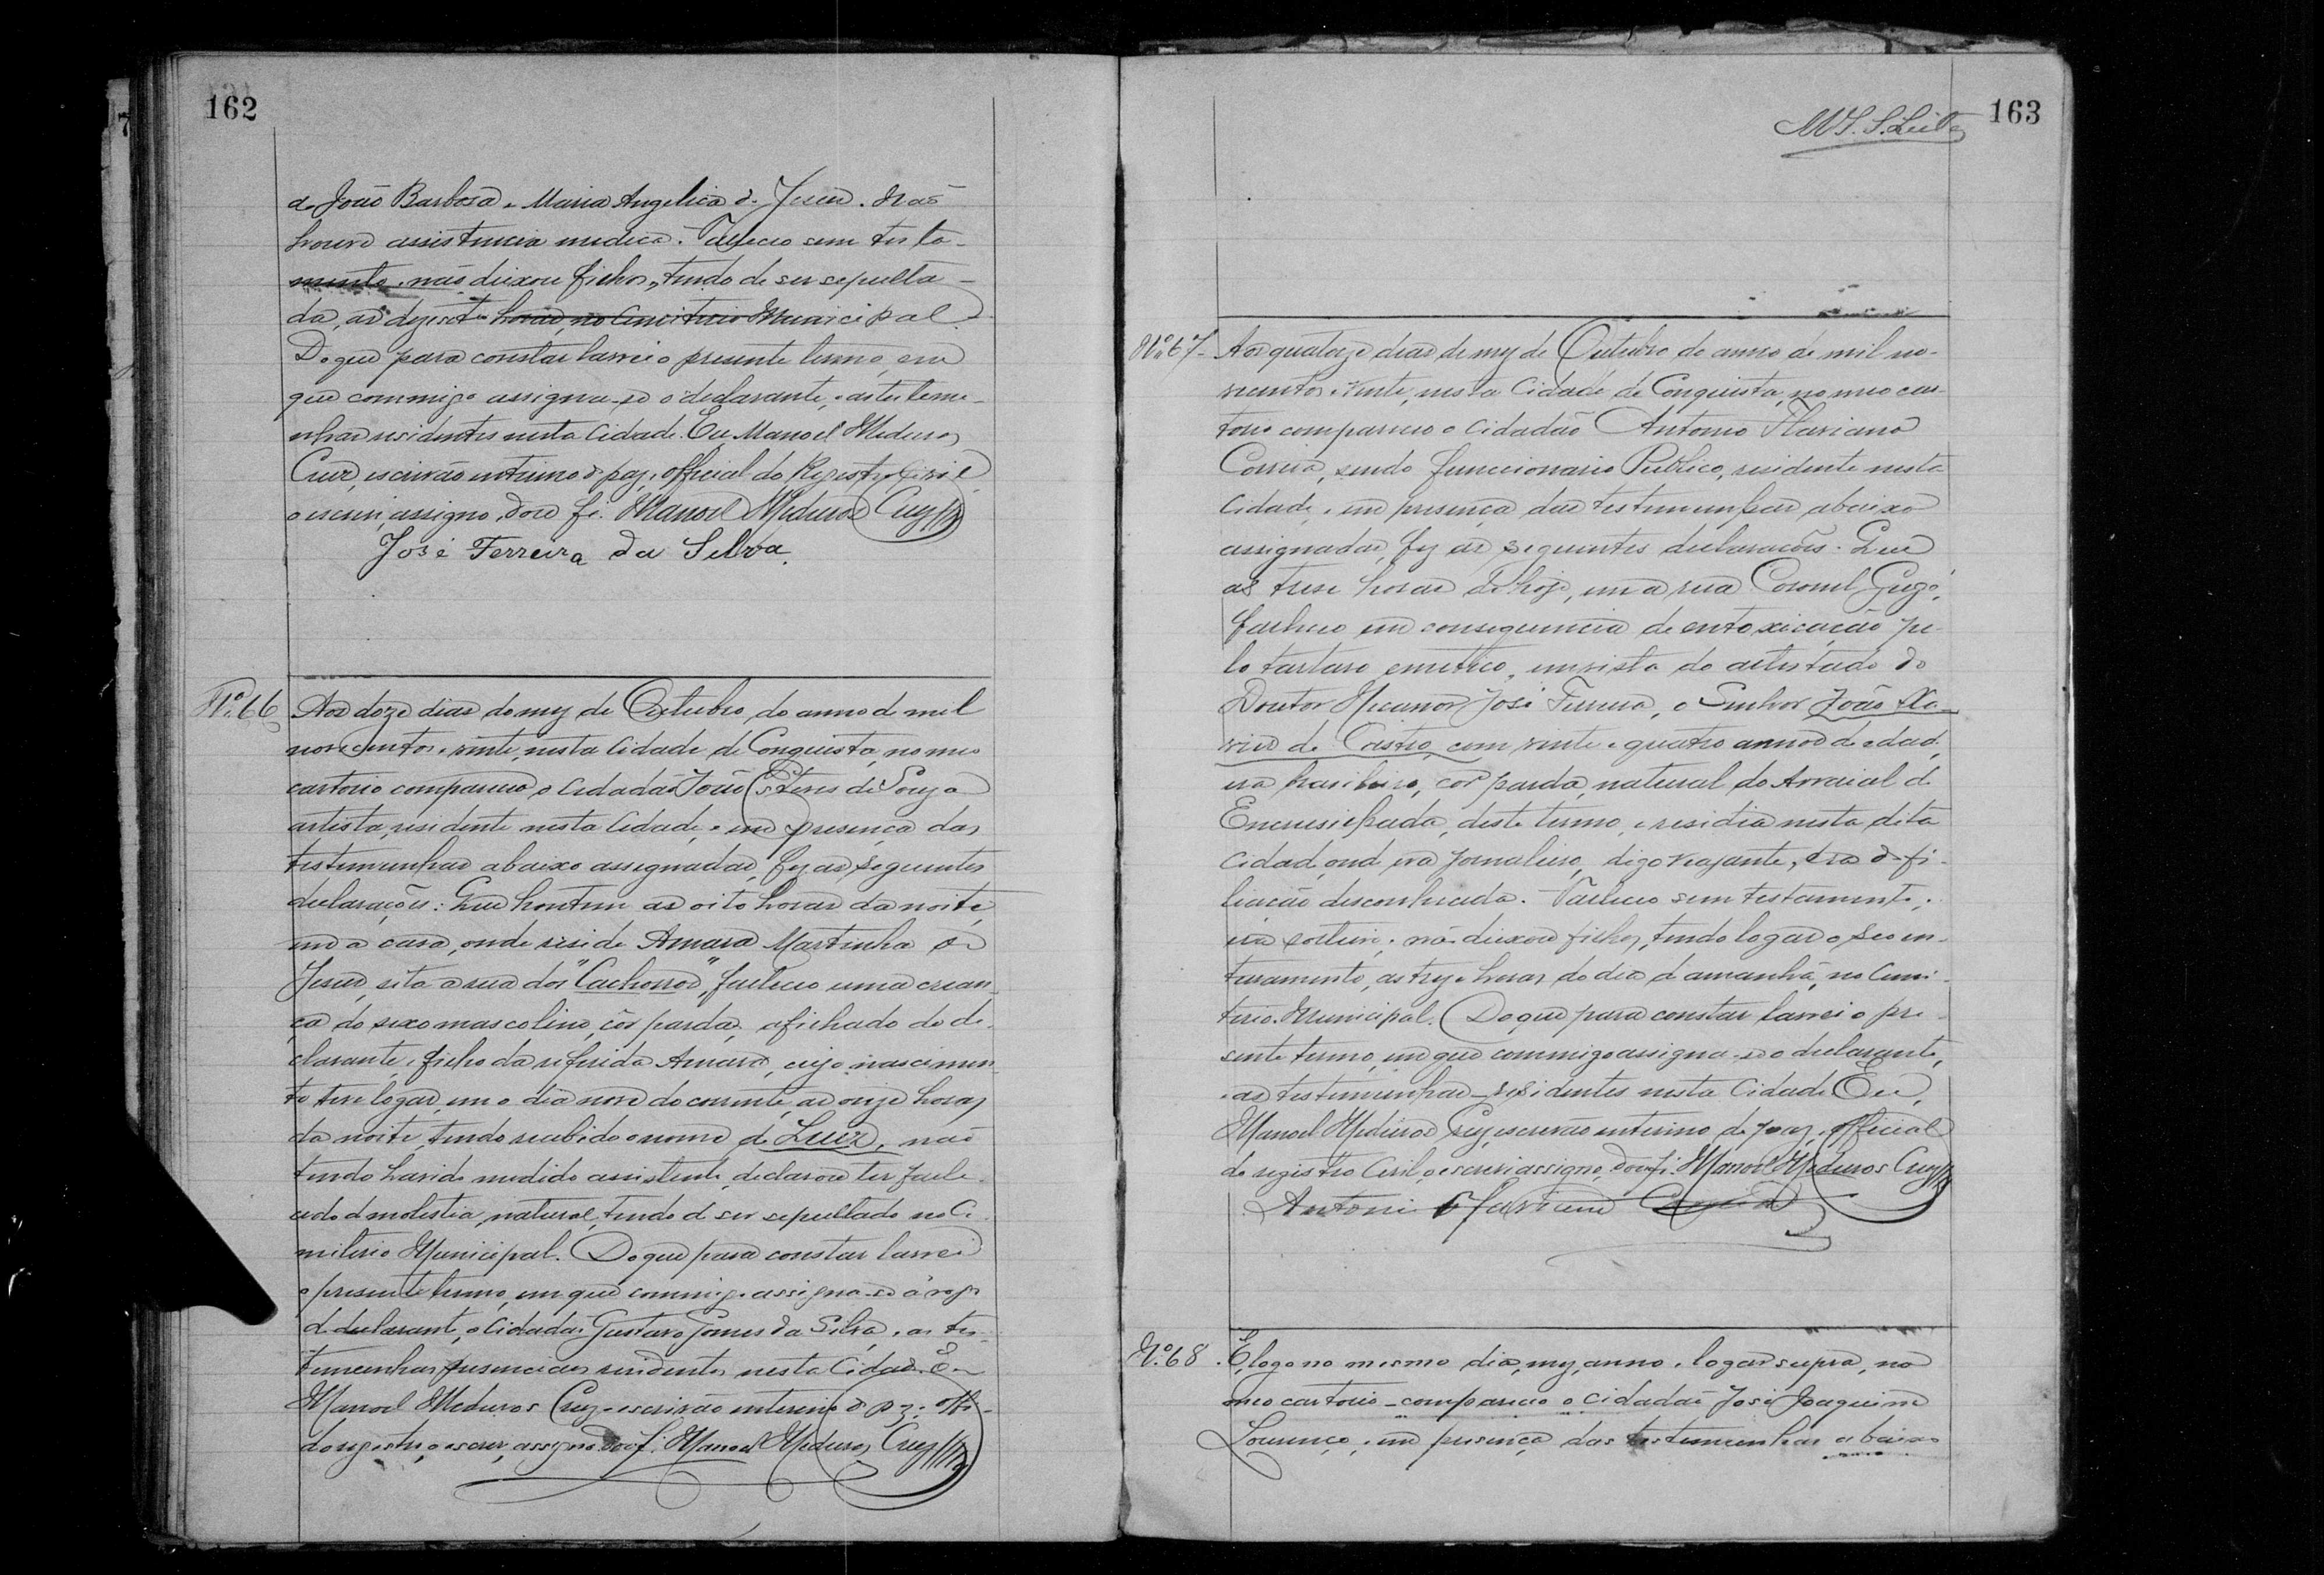 162
de João Barbosa e Maria Angelica de Jesus. Não
houve assistencia medica. Falleceu sem testa-
mento, não deixou filhos, tendo de ser sepulta-
da, as dezesete horas, no Cimiterio Municipal.
Do que para constar lavrei o presente termo, em
que commigo assigna-se o declarante, e as testemu-
nhas residentes nesta Cidade. Eu, Manoel Medeiros
Cruz, escrivão interino de paz, official do Registro Civil
o escrevi, assigno, dou fé. Manoel Medeiros Cruz
José Ferreira da Silva.
Nº 66
Aos doze dias do mez de Outubro, do anno de mil
novecentos e vinte, nesta Cidade de Conquista, no meu
cartorio compareceu o Cidadão João Esteves de Souza
artista, residente nesta Cidade, e em presença das
testemunhas abaixo assignadas, fez as seguintes
declarações: Que hontem as oito horas da noite,
em a casa, onde reside Amara Martinha de
Jesus, sita a rua dos "Cachorros", falleceu uma crean-
ça do sexo mascolino, côr parda, afilhado do de-
clarante, e filho da referida Amara, cujo nascimen-
to teve logar, em o dia nove do corrente, as onze horas
da noite, tendo recebido o nome de Luiz, não
tendo havido medido assistente, declarou ter falle-
cido de molestia natural, tendo de ser sepultado no Ci-
miterio Municipal. Do que para constar lavrei
o presente termo, em que commigo assigna-se á rogo
do declarante, o Cidadão Gustavo Gomes da Silva, e as tes-
temunhas presenciaes residentes nesta Cidade. Eu
Manoel Medeiros Cruz, escrivão interino de paz, offi-
do registro, o escrevi, assigno. Dou fé. Manoel Medeiros Cruz
163
Nº 67
Aos quatorze dias do mez de Outubro do anno de mil no-
vecentos e vinte, nesta Cidade de Conquista, no meu car-
torio compareceu o Cidadão Antonio Flaviano
Correia, sendo funccionario Publico, residente nesta
Cidade, e em presença das testemunhas abaixo
assignadas, fez as seguintes declarações: Que
as trese horas de hoje, em a rua Coronel Gugé,
falleceu em consequencia de entoxicação pe-
lo tartaro emetico, em vista do attestado do
Doutor Nicanor José Ferreira, o Senhor João Xa-
vier de Castro, com vinte e quatro annos de edade,
era brasileiro, côr parda, natural do Arraial de
Encruzilhada, deste termo, e residia nesta dita
Cidade, onde era jornaleiro, digo viajante, era de fi-
liação desconhecida. Falleceu sem testamento,
era solteiro, não deixou filhos, tendo logar o seo en-
terramento, as treze horas do dia de amanhã, no Cimi-
terio Municipal. Do que para constar lavrei o pre-
sente termo, em que commigo assigna-se o declarante,
e as testemunhas residentes nesta Cidade. Eu,
Manoel Medeiros Cruz, escrivão interino de paz, official
do registro Civil, o escrevi assigno, dou fé. Manoel Medeiros Cruz
Antonio Flaviano Correia
Nº 68
E, logo no mesmo dia, mez, anno e logar supra, no
meo cartorio compareceu o cidadão José Joaquim
Lourenço, e em presença das testemunhas abaixo